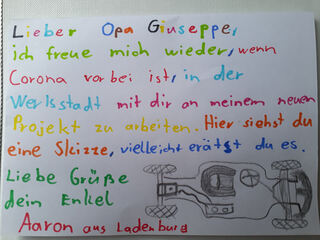 Lieber Opa Giuseppe,
ich freue mich wieder, wenn
Corona vorbei ist, in der
Werksstadt mit dir an meinem neuen
Projekt zu arbeiten. Hier siehst du
eine Skizze, vielleicht erätst du es.
Liebe Grüße
dein Enkel
Aaron aus Ladenburg